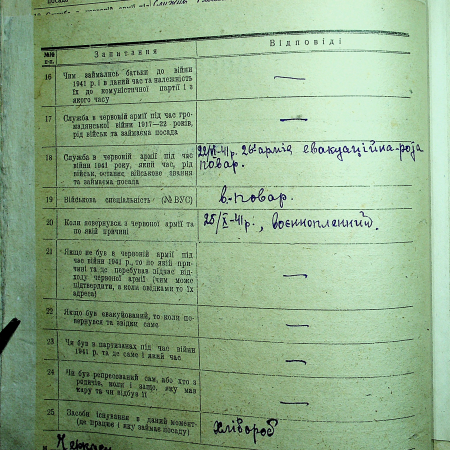 №№ п-п. Запитання Відповіді
16 Чим займались батьки до війни
1941 р. і в даний час та належність
їх до комуністичної партії і з
якого часу —
17 Служба в червоній армії під час гро-
мадянської війни 1917—22 років,
рід військ та займаєма посада —
18 Служба в червоній армії під час
війни 1941 року, який час, рід
військ, останнє військове звання
та займаєма посада
22/VI-41 р. 26 армія евакуаційна-рота
повар.
19 Військова спеціальність (№ ВУС) в.-повар.
20 Коли повернувся з червоної армії та
по якій причині
25/X-41 р., воєннопленний.
21 Якщо не був в червоній армії під
час війни 1941 р., то по якій при-
чині та де перебував підчас від-
ходу червоної армії (чим може
підтвердити, а коли свідками то їх
адреса) —
22 Якщо був евакуйований, то коли по-
вернувся та звідки саме —
23 Чи був в партизанах під час війни
1941 р. та де саме і який час —
24 Чи був репресований сам, або хто з
родичів, коли і защо, яку мав
кару та чи відбув її —
25 Засоби існування в даний момент
(де працює і яку займає посаду) хлібороб